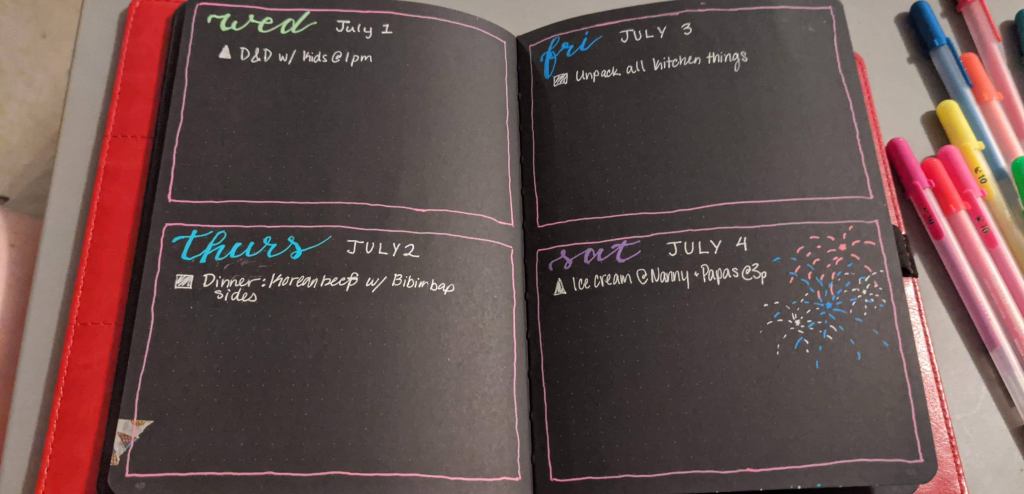 wed July 1
D&D w/ kids @ 1pm
thurs JULY 2
Dinner: Korean beef w/ Bibimbap
sides
fri JULY 3
Unpack all kitchen things
sat JULY 4
Ice cream @ Nanny + Papas @ 3p
10